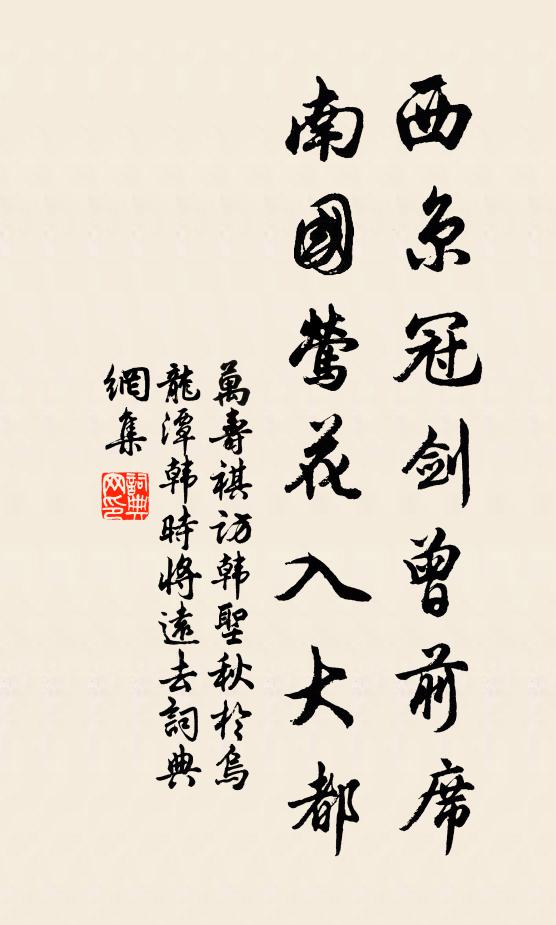 西京冠剑曾前席
南國鶯花入大都
萬壽祺访韩聖秋於烏
龍潭韩時將遠去詞典
網集
詞典
网印